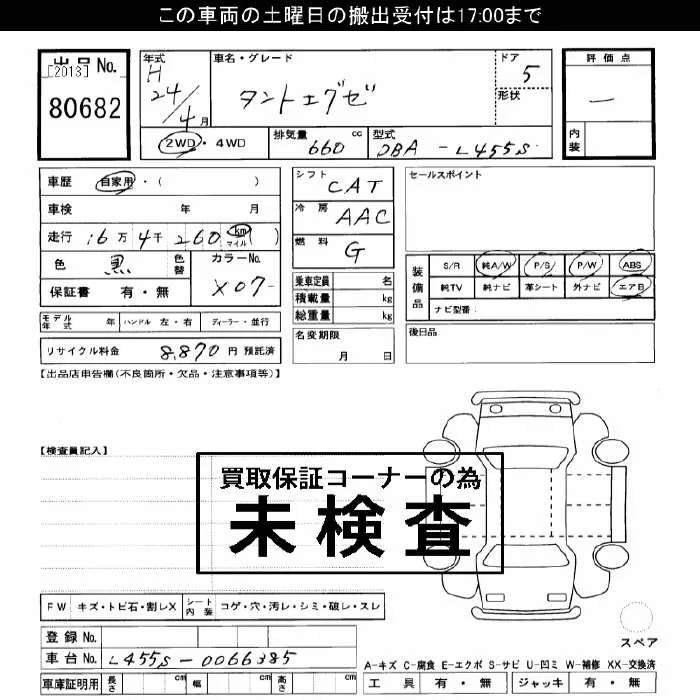 この車両の土曜日の搬出受付は17:00まで
出品 No.
[2013]
80682
年式
H
24/4月
車名・グレード
タントエグゼ
ドア
5
形状
評価点
—
内装
2WD・4WD
排気量 cc
660
型式
DBA-L455S
車歴 自家用・( )
車検 年 月
走行 16万4千260 km マイル ( )
色 黒 色替
カラーNo.
X07-
保証書 有・無
シフト
CAT
冷房
AAC
燃料
G
乗車定員 名
積載量 kg
総重量 kg
セールスポイント
装備品
S/R 純A/W P/S P/W ABS
純TV 純ナビ 革シート 外ナビ エアB
ナビ型番:
モデル年式 年 ハンドル 左・右 ディーラー・並行
リサイクル料金 8,870 円 預託済
名変期限
月 日
後日品
【出品店申告欄(不良箇所・欠品・注意事項等)】
【検査員記入】
買取保証コーナーの為
未検査
FW キズ・トビ石・割レX シート内装 コゲ・穴・汚レ・シミ・破レ・スレ
スペア
登録 No.
車台 No. L455S-0066385
A-キズ C-腐食 E-エクボ S-サビ U-凹ミ W-補修 XX-交換済
車庫証明用 長さ cm 幅 cm 高さ cm
工具 有・無 ジャッキ 有・無